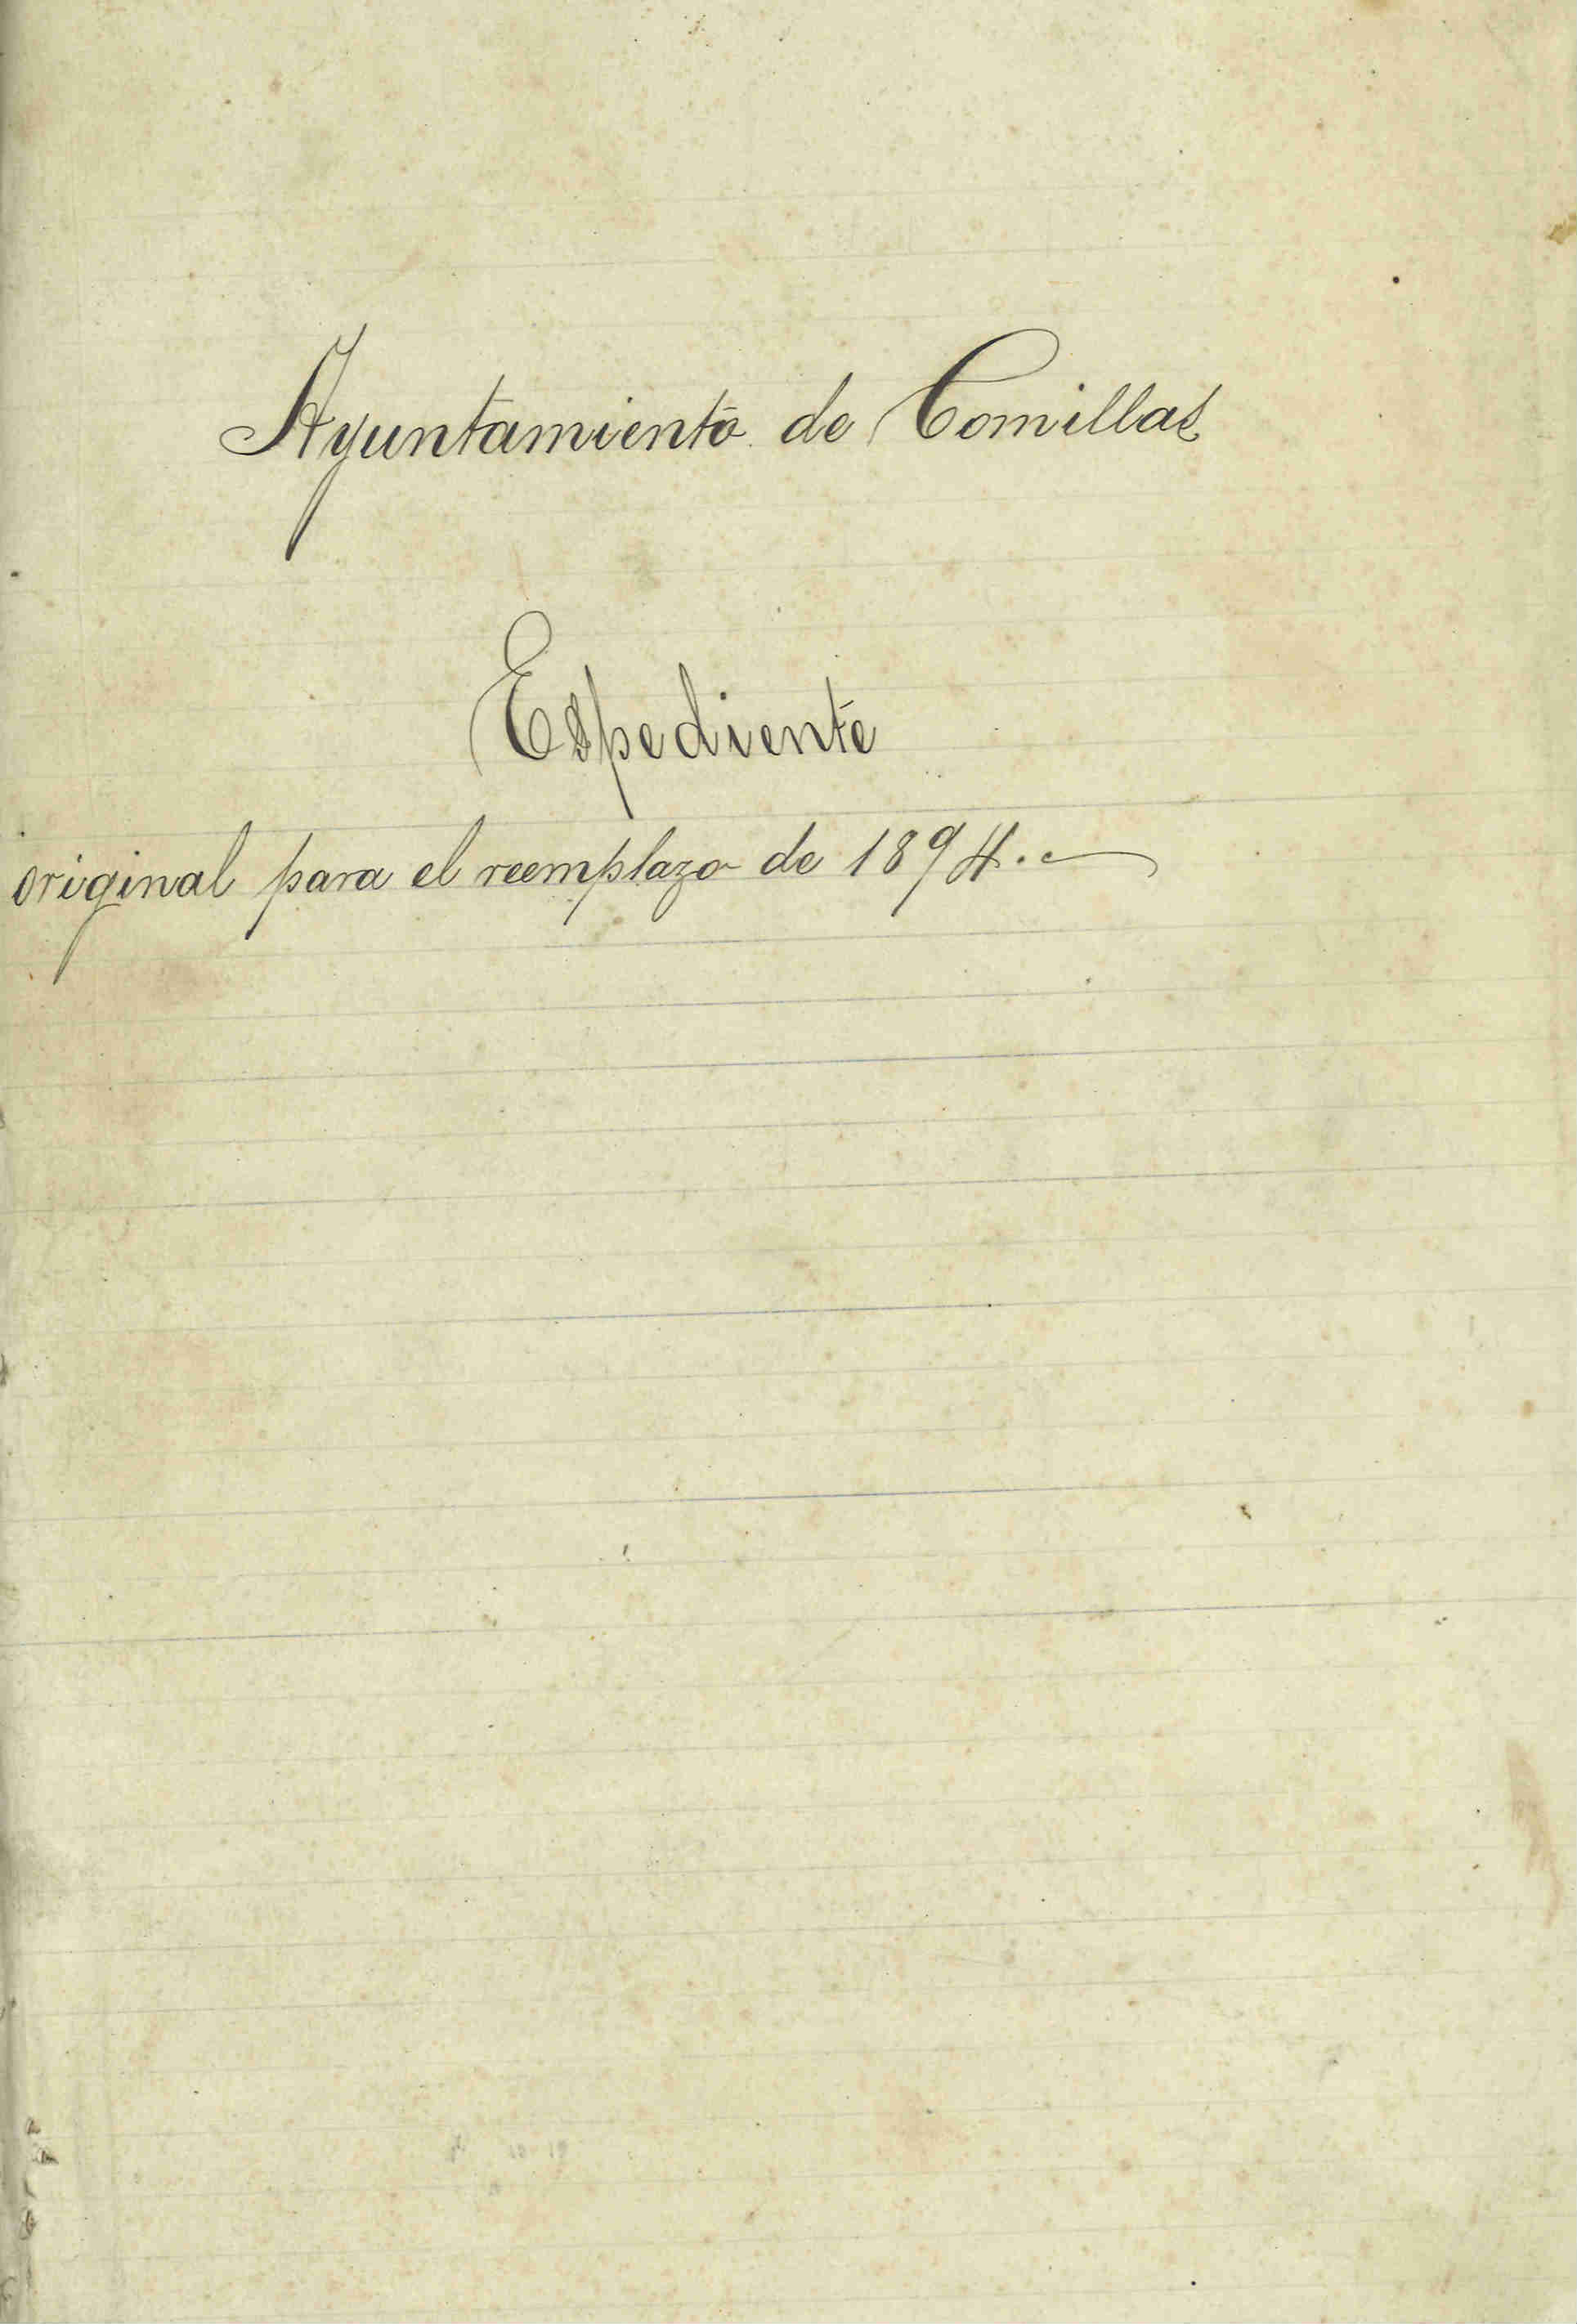 Ayuntamiento de Comillas
Espediente
original para el reemplazo de 1894.